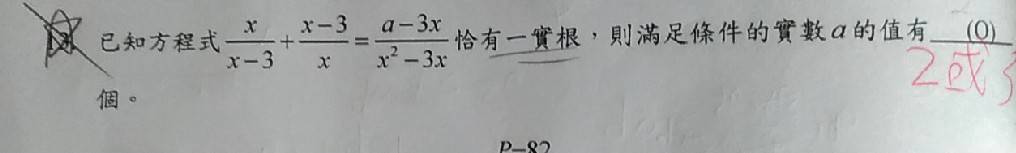 已知方程式 x/(x-3) + (x-3)/x = (a-3x)/(x²-3x) 恰有一實根,則滿足條件的實數 a 的值有 (0)
2或3
個。
P-82